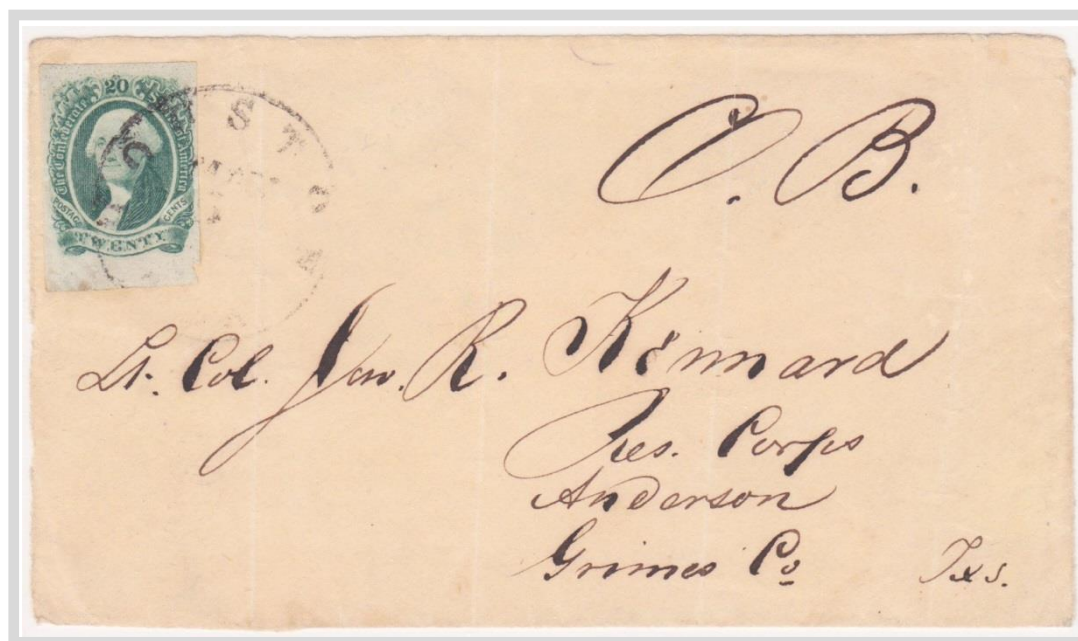 20
The Confederate States of America
POSTAGE CENTS
TWENTY
O. B.
Lt. Col. Jno. R. Kennard
Res. Corps
Anderson
Grimes Co
Txs.